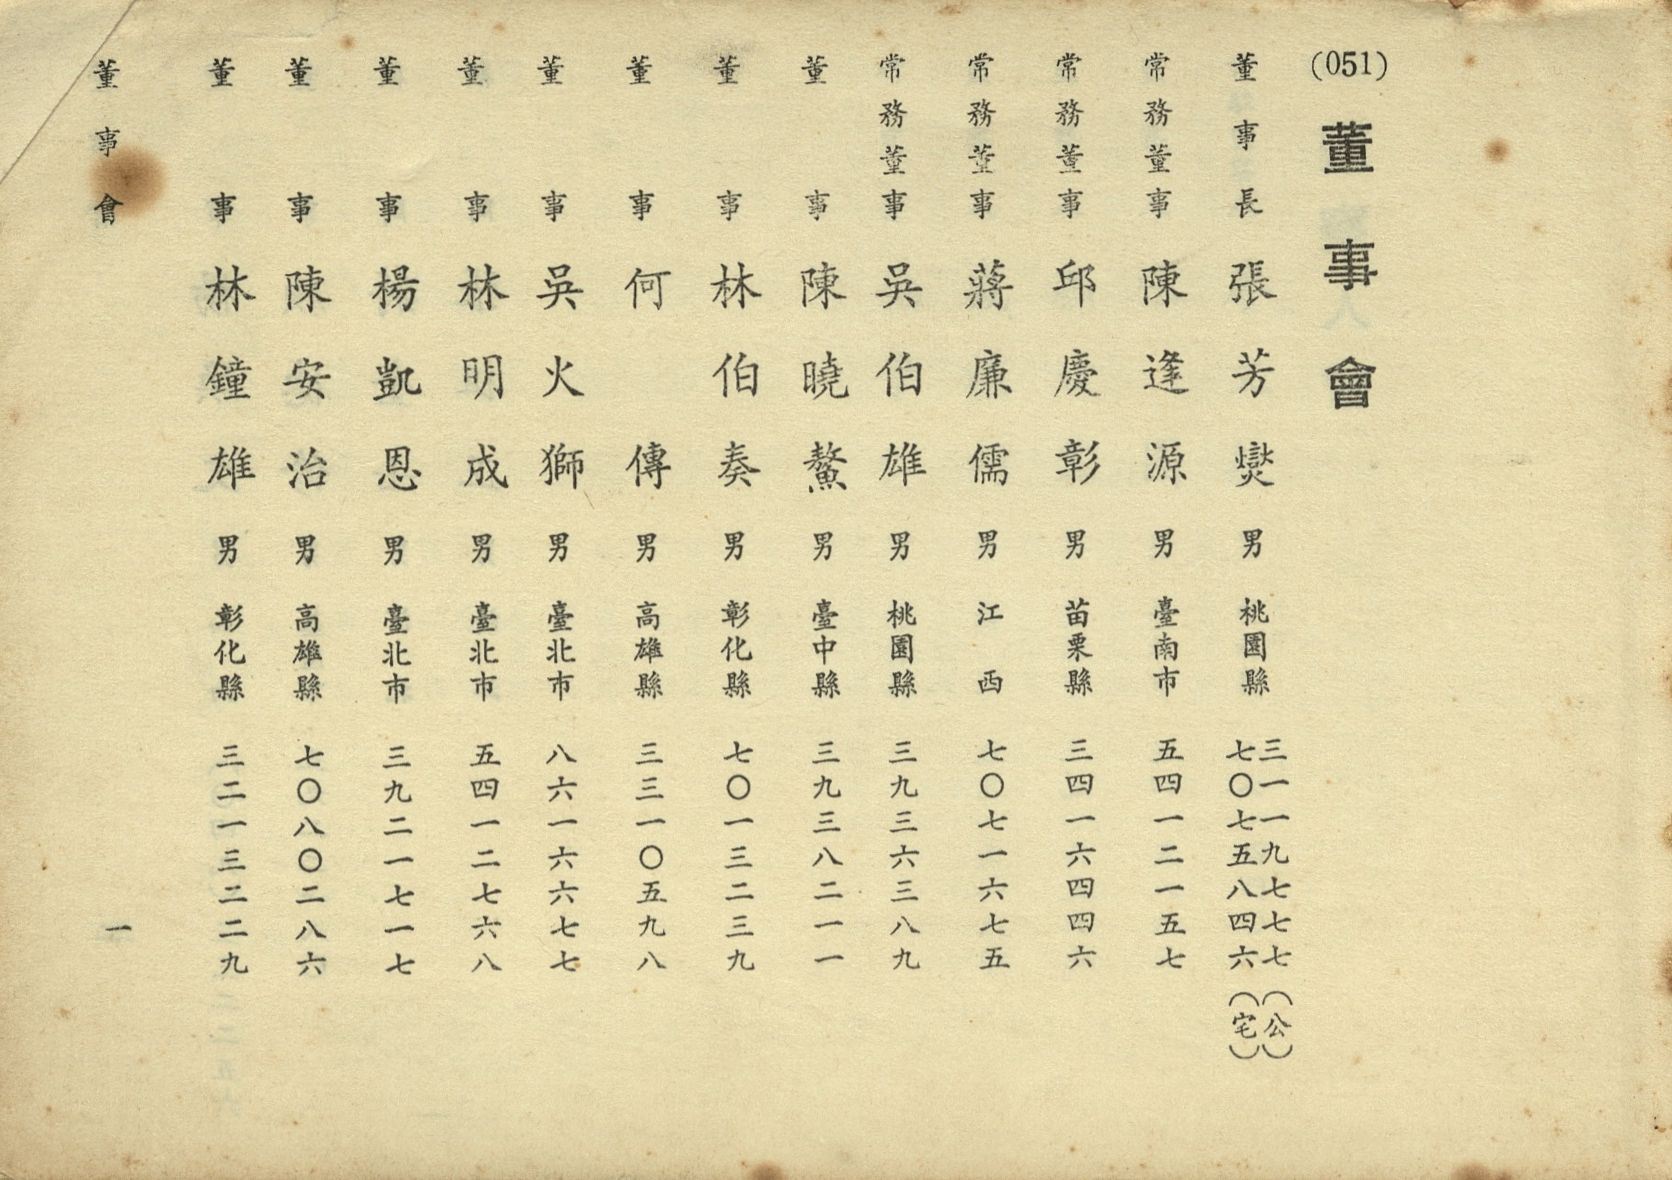 (051)
董事會
董事長 張芳燮 男 桃園縣 三一一九七七七（公）
七〇七五八四六（宅）
常務董事 陳逢源 男 臺南市 五四一二一五七
常務董事 邱慶彰 男 苗栗縣 三四一六四四六
常務董事 蔣廉儒 男 江西 七〇七一六七五
常務董事 吳伯雄 男 桃園縣 三九三六三八九
董事 陳曉鰲 男 臺中縣 三九三八二一一
董事 林伯奏 男 彰化縣 七〇一三二三九
董事 何傳 男 高雄縣 三三一〇五九八
董事 吳火獅 男 臺北市 八六一六六七七
董事 林明成 男 臺北市 五四一二七六八
董事 楊凱恩 男 臺北市 三九二一七一七
董事 陳安治 男 高雄縣 七〇八〇二八六
董事 林鐘雄 男 彰化縣 三二一三二二九
董事會 一